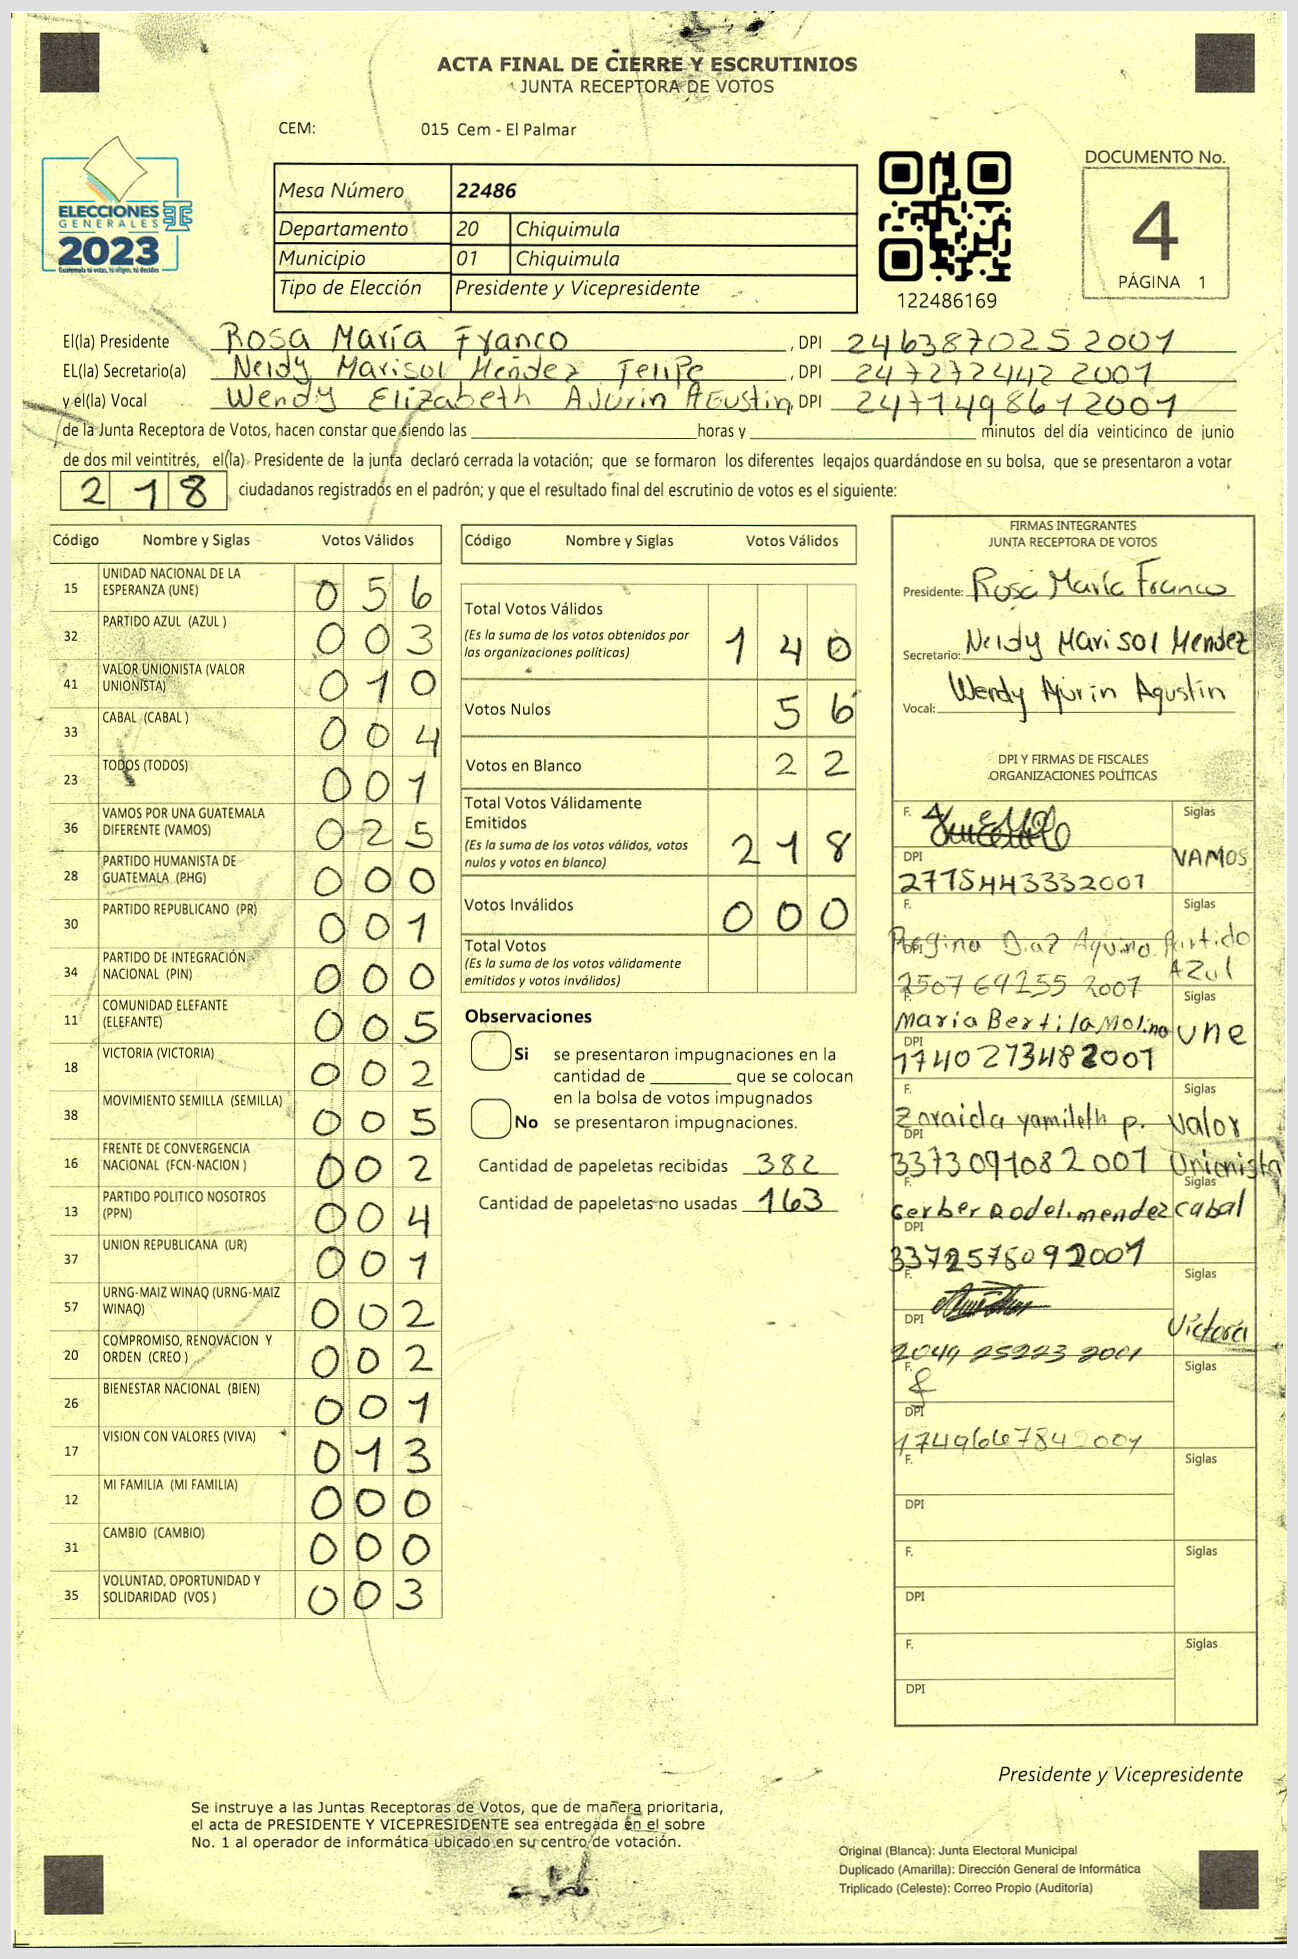 ACTA FINAL DE CIERRE Y ESCRUTINIOS
JUNTA RECEPTORA DE VOTOS
CEM: 015 Cem - El Palmar
ELECCIONES
GENERALES
2023
Guatemala tú votas, tú eliges, tú decides
Mesa Número 22486
Departamento 20 Chiquimula
Municipio 01 Chiquimula
Tipo de Elección Presidente y Vicepresidente
122486169
DOCUMENTO No.
4
PÁGINA 1
El(la) Presidente Rosa María Franco, DPI 2463870252001
EL(la) Secretario(a) Neidy Marisol Méndez Felipe, DPI 2472724422001
y el(la) Vocal Wendy Elizabeth Ajurin Agustin, DPI 2471498612001
de la Junta Receptora de Votos, hacen constar que siendo las horas y minutos del día veinticinco de junio
de dos mil veintitrés, el(la) Presidente de la junta declaró cerrada la votación; que se formaron los diferentes legajos quardándose en su bolsa, que se presentaron a votar
218 ciudadanos registrados en el padrón; y que el resultado final del escrutinio de votos es el siguiente:
Código Nombre y Siglas Votos Válidos
15 UNIDAD NACIONAL DE LA ESPERANZA (UNE) 056
32 PARTIDO AZUL (AZUL ) 003
41 VALOR UNIONISTA (VALOR UNIONISTA) 010
33 CABAL (CABAL ) 004
23 TODOS (TODOS) 001
36 VAMOS POR UNA GUATEMALA DIFERENTE (VAMOS) 025
28 PARTIDO HUMANISTA DE GUATEMALA (PHG) 000
30 PARTIDO REPUBLICANO (PR) 001
34 PARTIDO DE INTEGRACIÓN NACIONAL (PIN) 000
11 COMUNIDAD ELEFANTE (ELEFANTE) 005
18 VICTORIA (VICTORIA) 002
38 MOVIMIENTO SEMILLA (SEMILLA) 005
16 FRENTE DE CONVERGENCIA NACIONAL (FCN-NACION ) 002
13 PARTIDO POLITICO NOSOTROS (PPN) 004
37 UNION REPUBLICANA (UR) 001
57 URNG-MAIZ WINAQ (URNG-MAIZ WINAQ) 002
20 COMPROMISO, RENOVACION Y ORDEN (CREO ) 002
26 BIENESTAR NACIONAL (BIEN) 001
17 VISION CON VALORES (VIVA) 013
12 MI FAMILIA (MI FAMILIA) 000
31 CAMBIO (CAMBIO) 000
35 VOLUNTAD, OPORTUNIDAD Y SOLIDARIDAD (VOS ) 003
Código Nombre y Siglas Votos Válidos
Total Votos Válidos 140
(Es la suma de los votos obtenidos por
las organizaciones políticas)
Votos Nulos 56
Votos en Blanco 22
Total Votos Válidamente
Emitidos
(Es la suma de los votos válidos, votos
nulos y votos en blanco) 218
Votos Inválidos 000
Total Votos
(Es la suma de los votos válidamente
emitidos y votos inválidos)
Observaciones
Si se presentaron impugnaciones en la
cantidad de que se colocan
en la bolsa de votos impugnados
No se presentaron impugnaciones.
Cantidad de papeletas recibidas 382
Cantidad de papeletas no usadas 163
FIRMAS INTEGRANTES
JUNTA RECEPTORA DE VOTOS
Presidente: Rosa María Franco
Secretario: Neidy Marisol Mendez
Vocal: Wendy Ajurin Agustin
DPI Y FIRMAS DE FISCALES
ORGANIZACIONES POLÍTICAS
F. Siglas
VAMOS
DPI
2775443332001
F. Siglas
Regina Diaz Aquino Partido
Azul
2507 69255 2007
F. Siglas
Maria Bertila Molina une
DPI
1740273482001
F. Siglas
Zoraida yamileth p. Valor
DPI
3373091082001 Unionista
F. Siglas
Gerber Rodel. mendez cabal
DPI
3372575092001
F. Siglas
DPI
Victoria
2049 25223 2001
F. Siglas
DPI
1749667842001
F. Siglas
DPI
F. Siglas
DPI
F. Siglas
DPI
Presidente y Vicepresidente
Se instruye a las Juntas Receptoras de Votos, que de manera prioritaria,
el acta de PRESIDENTE Y VICEPRESIDENTE sea entregada en el sobre
No. 1 al operador de informática ubicado en su centro de votación.
Original (Blanca): Junta Electoral Municipal
Duplicado (Amarilla): Dirección General de Informática
Triplicado (Celeste): Correo Propio (Auditoría)